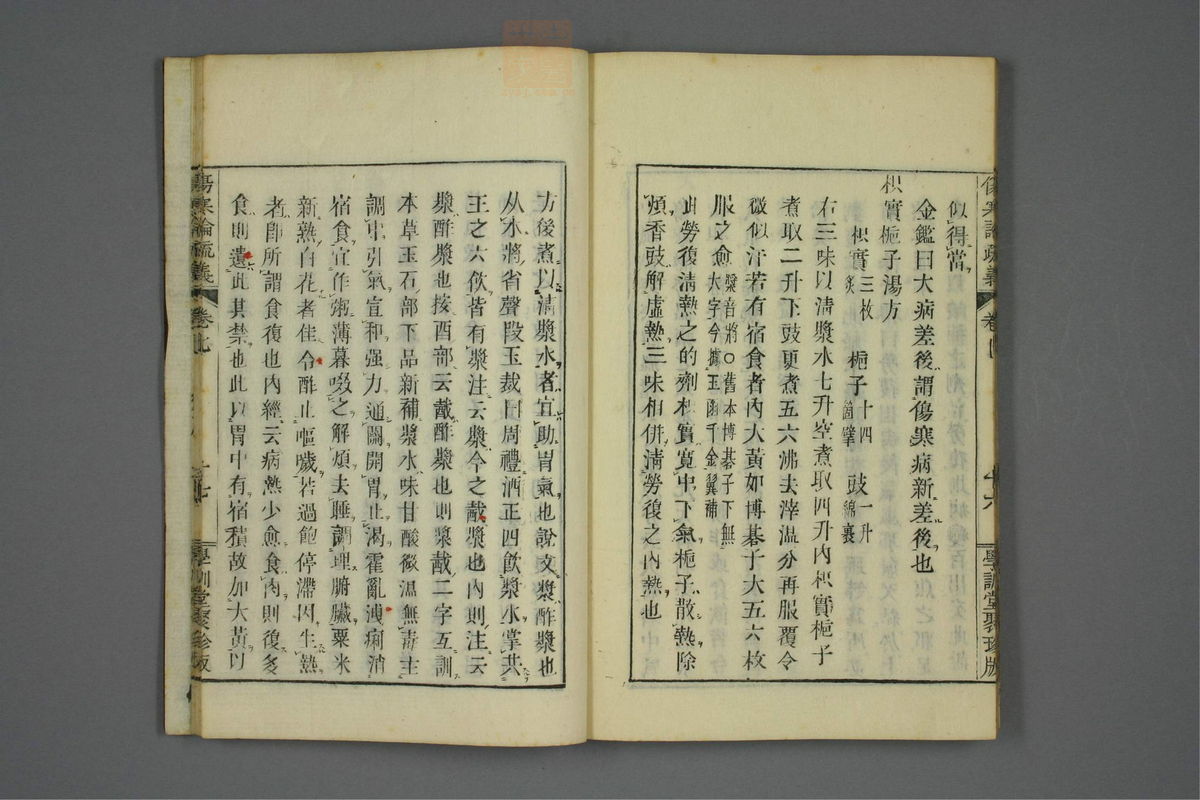 傷寒論疏義
卷
十六
學訓堂聚珍版
似得當
金鑑曰大病差後謂傷寒病新差後也
枳實梔子湯方
枳實三枚炙 梔子十四箇擘 豉一升綿裹
右三味以清漿水七升空煮取四升內枳實梔子
煮取二升下豉更煮五六沸去滓溫分再服覆令
微似汗若有宿食者內大黃如博碁子大五六枚
服之愈漿音將○舊本博碁子下無大字今據玉函千金翼補
此勞復清熱之的劑枳實寬中下氣梔子散熱除
煩香豉解虛熱三味相併淸勞復之內熱也
方後煮以清漿水者宜助胃氣也說文漿酢漿也
从水將省聲段玉裁曰周禮酒正四飮漿水掌共
王之六飮皆有漿注云漿今之胾漿也內則注云
漿酢胾也按酉部云胾酢漿也則漿胾二字互訓
本草玉石部下品新補漿水味甘酸微溫無毒主
調中引氣宣和强力通關開胃止渴霍亂洩痢消
宿食宜作粥薄暮啜之解煩去睡調理腑臟粟米
新熟白花者佳令酢止嘔噦若過飽停滯因生熱
者卽所謂食復也內經云病熱少愈食肉則復多
食則遺此其禁也此以胃中有宿積故加大黃以
傷寒論疏義
卷七
十七
學訓堂聚珍版